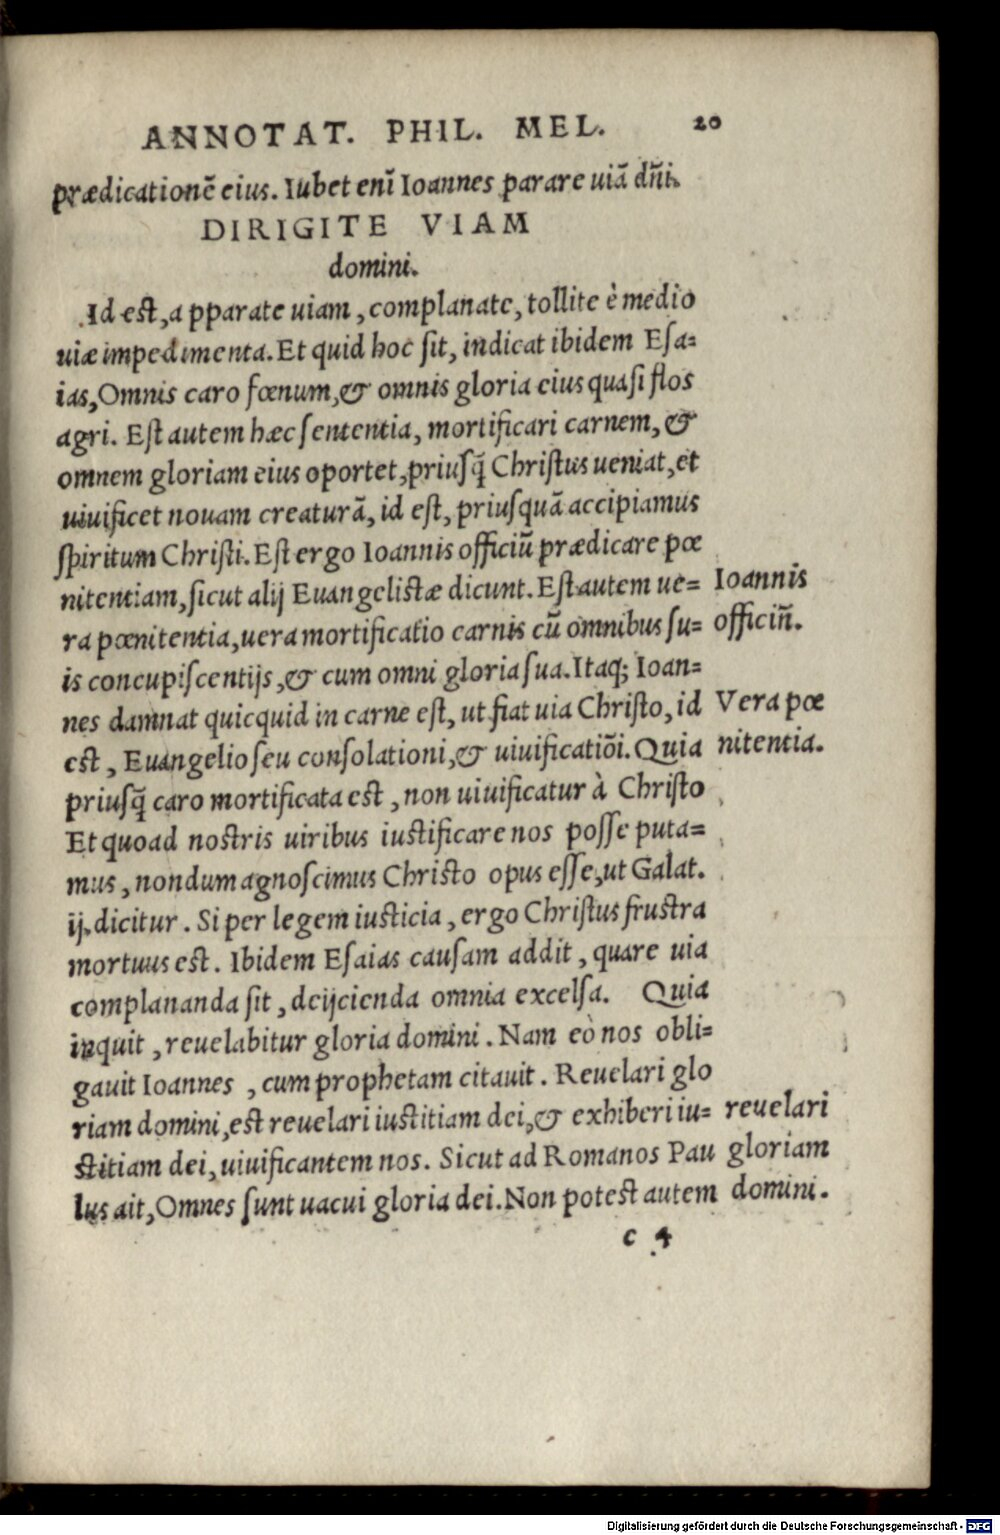 ANNOTAT. PHIL. MEL. 20
prædicationē eius. Iubet enī Ioannes parare uiā dñi.
DIRIGITE VIAM
domini.
Id est, apparate uiam, complanate, tollite è medio
uiæ impedimenta. Et quid hoc sit, indicat ibidem Esa=
ias, Omnis caro fœnum, & omnis gloria eius quasi flos
agri. Est autem hæc sententia, mortificari carnem, &
omnem gloriam eius oportet, priusq̃ Christus ueniat, et
uiuificet nouam creaturā, id est, priusquā accipiamus
spiritum Christi. Est ergo Ioannis officiū prædicare pœ
nitentiam, sicut alij Euangelistæ dicunt. Est autem ue= Ioannis
ra pœnitentia, uera mortificatio carnis cū omnibus su= officiū.
is concupiscentijs, & cum omni gloria sua. Itaq; Ioan=
nes damnat quicquid in carne est, ut fiat uia Christo, id Vera pœ
est, Euangelio seu consolationi, & uiuificatiōi. Quia nitentia.
priusq̃ caro mortificata est, non uiuificatur à Christo
Et quoad nostris uiribus iustificare nos posse puta=
mus, nondum agnoscimus Christo opus esse, ut Galat.
ij. dicitur. Si per legem iusticia, ergo Christus frustra
mortuus est. Ibidem Esaias causam addit, quare uia
complananda sit, deijcienda omnia excelsa. Quia
inquit, reuelabitur gloria domini. Nam eò nos obli=
gauit Ioannes, cum prophetam citauit. Reuelari glo
riam domini, est reuelari iustitiam dei, & exhiberi iu= reuelari
stitiam dei, uiuificantem nos. Sicut ad Romanos Pau gloriam
lus ait, Omnes sunt uacui gloria dei. Non potest autem domini.
c 4
Digitalisierung gefördert durch die Deutsche Forschungsgemeinschaft - DFG